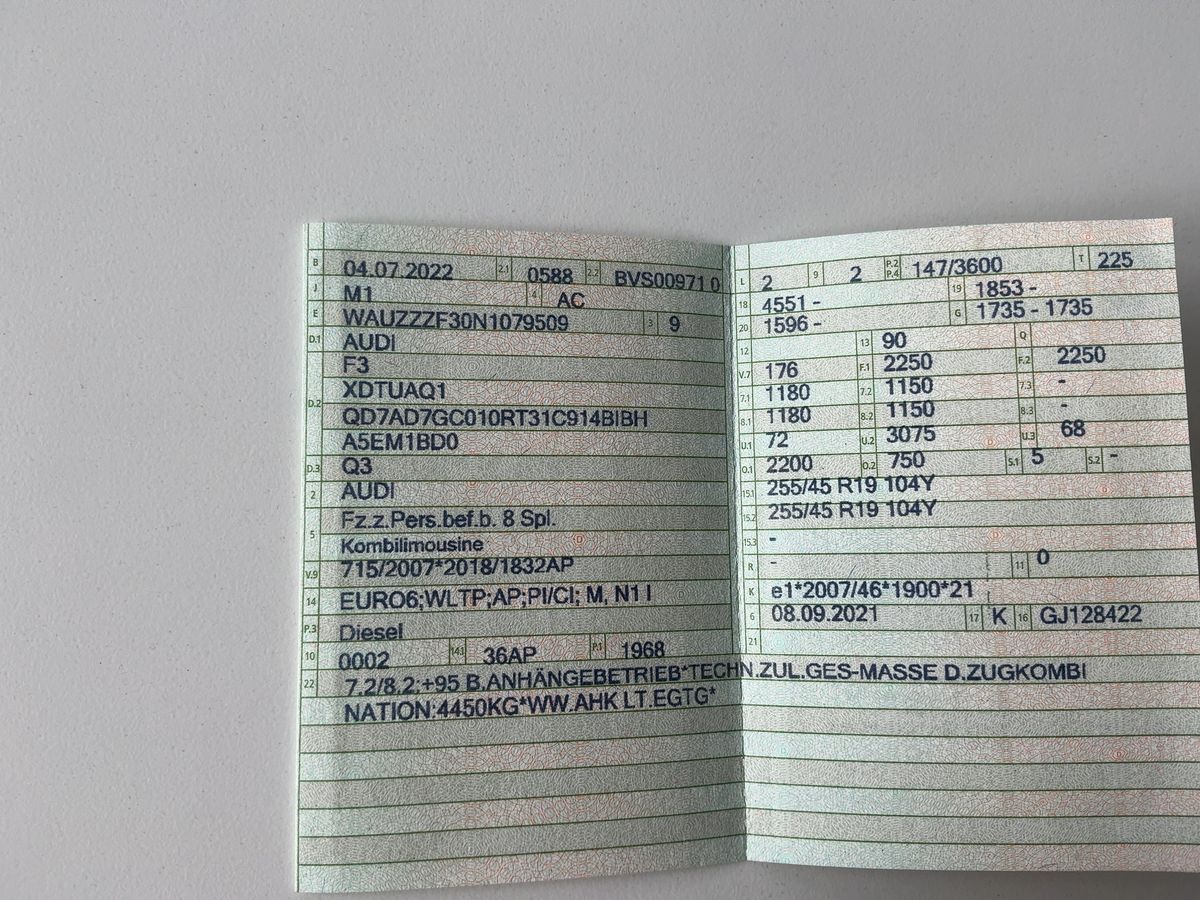 B 04.07.2022 2.1 0588 2.2 BVS00971 0
J M1 4 AC
E WAUZZZF30N1079509 3 9
D.1 AUDI
F3
D.2 XDTUAQ1
QD7AD7GC010RT31C914BIBH
A5EM1BD0
D.3 Q3
2 AUDI
5 Fz.z.Pers.bef.b. 8 Spl.
Kombilimousine
V.9 715/2007*2018/1832AP
14 EURO6;WLTP;AP;PI/CI; M, N1 I
P.3 Diesel
10 0002 14.1 36AP P.1 1968
22 7.2/8.2:+95 B.ANHÄNGEBETRIEB*TECHN.ZUL.GES-MASSE D.ZUGKOMBI
NATION:4450KG*WW.AHK LT.EGTG*
L 2 9 2 P.2 P.4 147/3600 T 225
18 4551 - 19 1853 -
20 1596 - G 1735 - 1735
12 13 90 Q
V.7 176 F.1 2250 F.2 2250
7.1 1180 7.2 1150 7.3 -
8.1 1180 8.2 1150 8.3 -
U.1 72 U.2 3075 U.3 68
O.1 2200 O.2 750 S.1 5 S.2 -
15.1 255/45 R19 104Y
15.2 255/45 R19 104Y
15.3 -
R - 11 0
K e1*2007/46*1900*21
6 08.09.2021 17 K 16 GJ128422
21